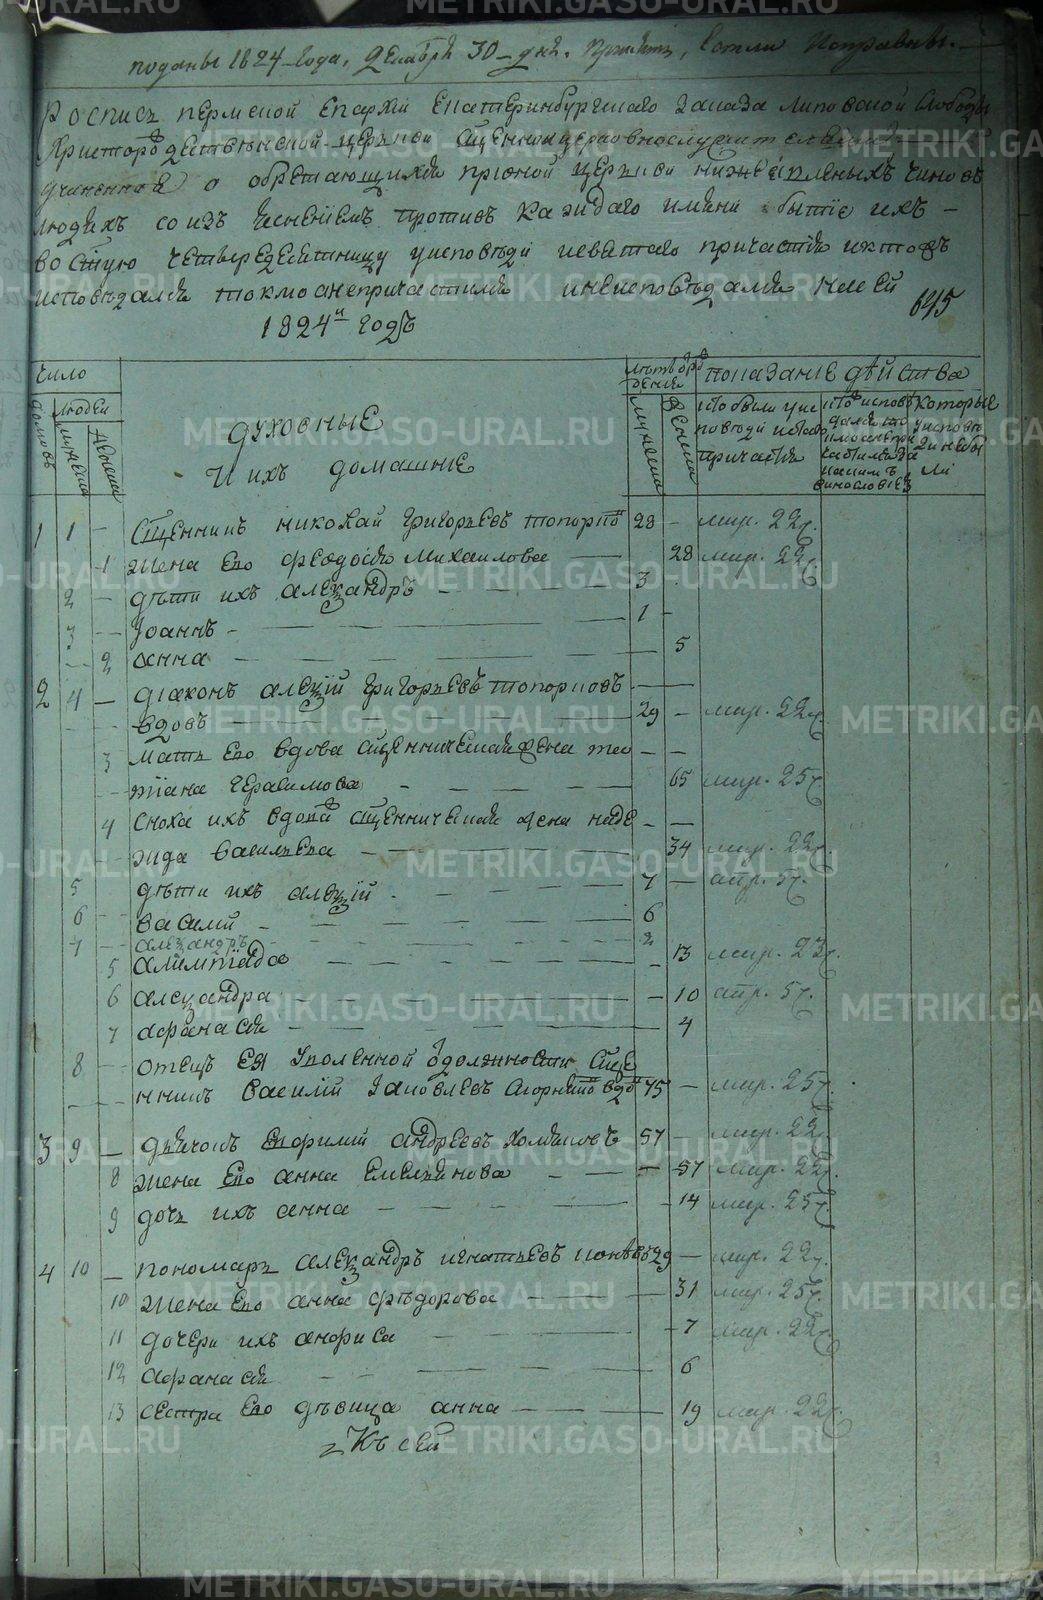 METRIKI.GASO-URAL.RU
поданы 1824 года, декабря 30 дня.
Роспись Пермской Епархии Екатеринбургскаго Заказа Липовской слободы
Христорождественской церкви священноцерковнослужителями
учиненная о обретающихся при оной церкви нижеявленныхъ чиновъ
людехъ со изъяснениемъ противъ каждаго имени бытие ихъ
во святую четыредесятницу у исповеди и святаго причастия и кто
исповедался токмо а не причастился и не исповедался
1824 годъ
645
Число
домовъ
людей
мужеска
женска
духовные
и ихъ домашние
мужеска
женска
показание действа
кто были у исповеди и святаго причастия
которые у исповеди не были
1 1 — Священникъ Николай Григорьевъ Топорковъ 28 — мар. 22
1 жена его Феодосия Михаилова — 28 мар. 22
2 — дети ихъ Александръ — 3
3 — Иоаннъ — 1 —
2 Анна — 5
2 4 — диаконъ Алексий Григорьевъ Топорковъ
вдовъ — 29 — мар. 22
3 мать его вдова священническая жена Та
тиана Герасимова — 65 мар. 25
4 сноха ихъ вдовая священническая жена Наде
жда Васильева — 34 мар. 22
5 дети ихъ Алексий — 7 — апр. 5
6 Василий — 6
7 Александръ — 2
5 Алимпиада — 13 мар. 23
6 Александра — 10 апр. 5
7 Афанасия — 4
8 — отецъ ея уволенной от должности Свяще
нникъ Василий Иаковлевъ вдовъ 75 — мар. 25
3 9 — дьячокъ Евфимий Андреевъ 57 — мар. 22
8 жена его Анна Емельянова — 57 мар. 22
9 дочь ихъ Анна — 14 мар. 25
4 10 — пономарь Александръ Игнатьевъ 29 — мар. 22
10 жена его Анна Федорова — 31 мар. 25
11 дочери ихъ Анфиса — 7 мар. 22
12 Афанасия — 6
13 сестра его девица Анна — 19 мар. 22
Къ сей